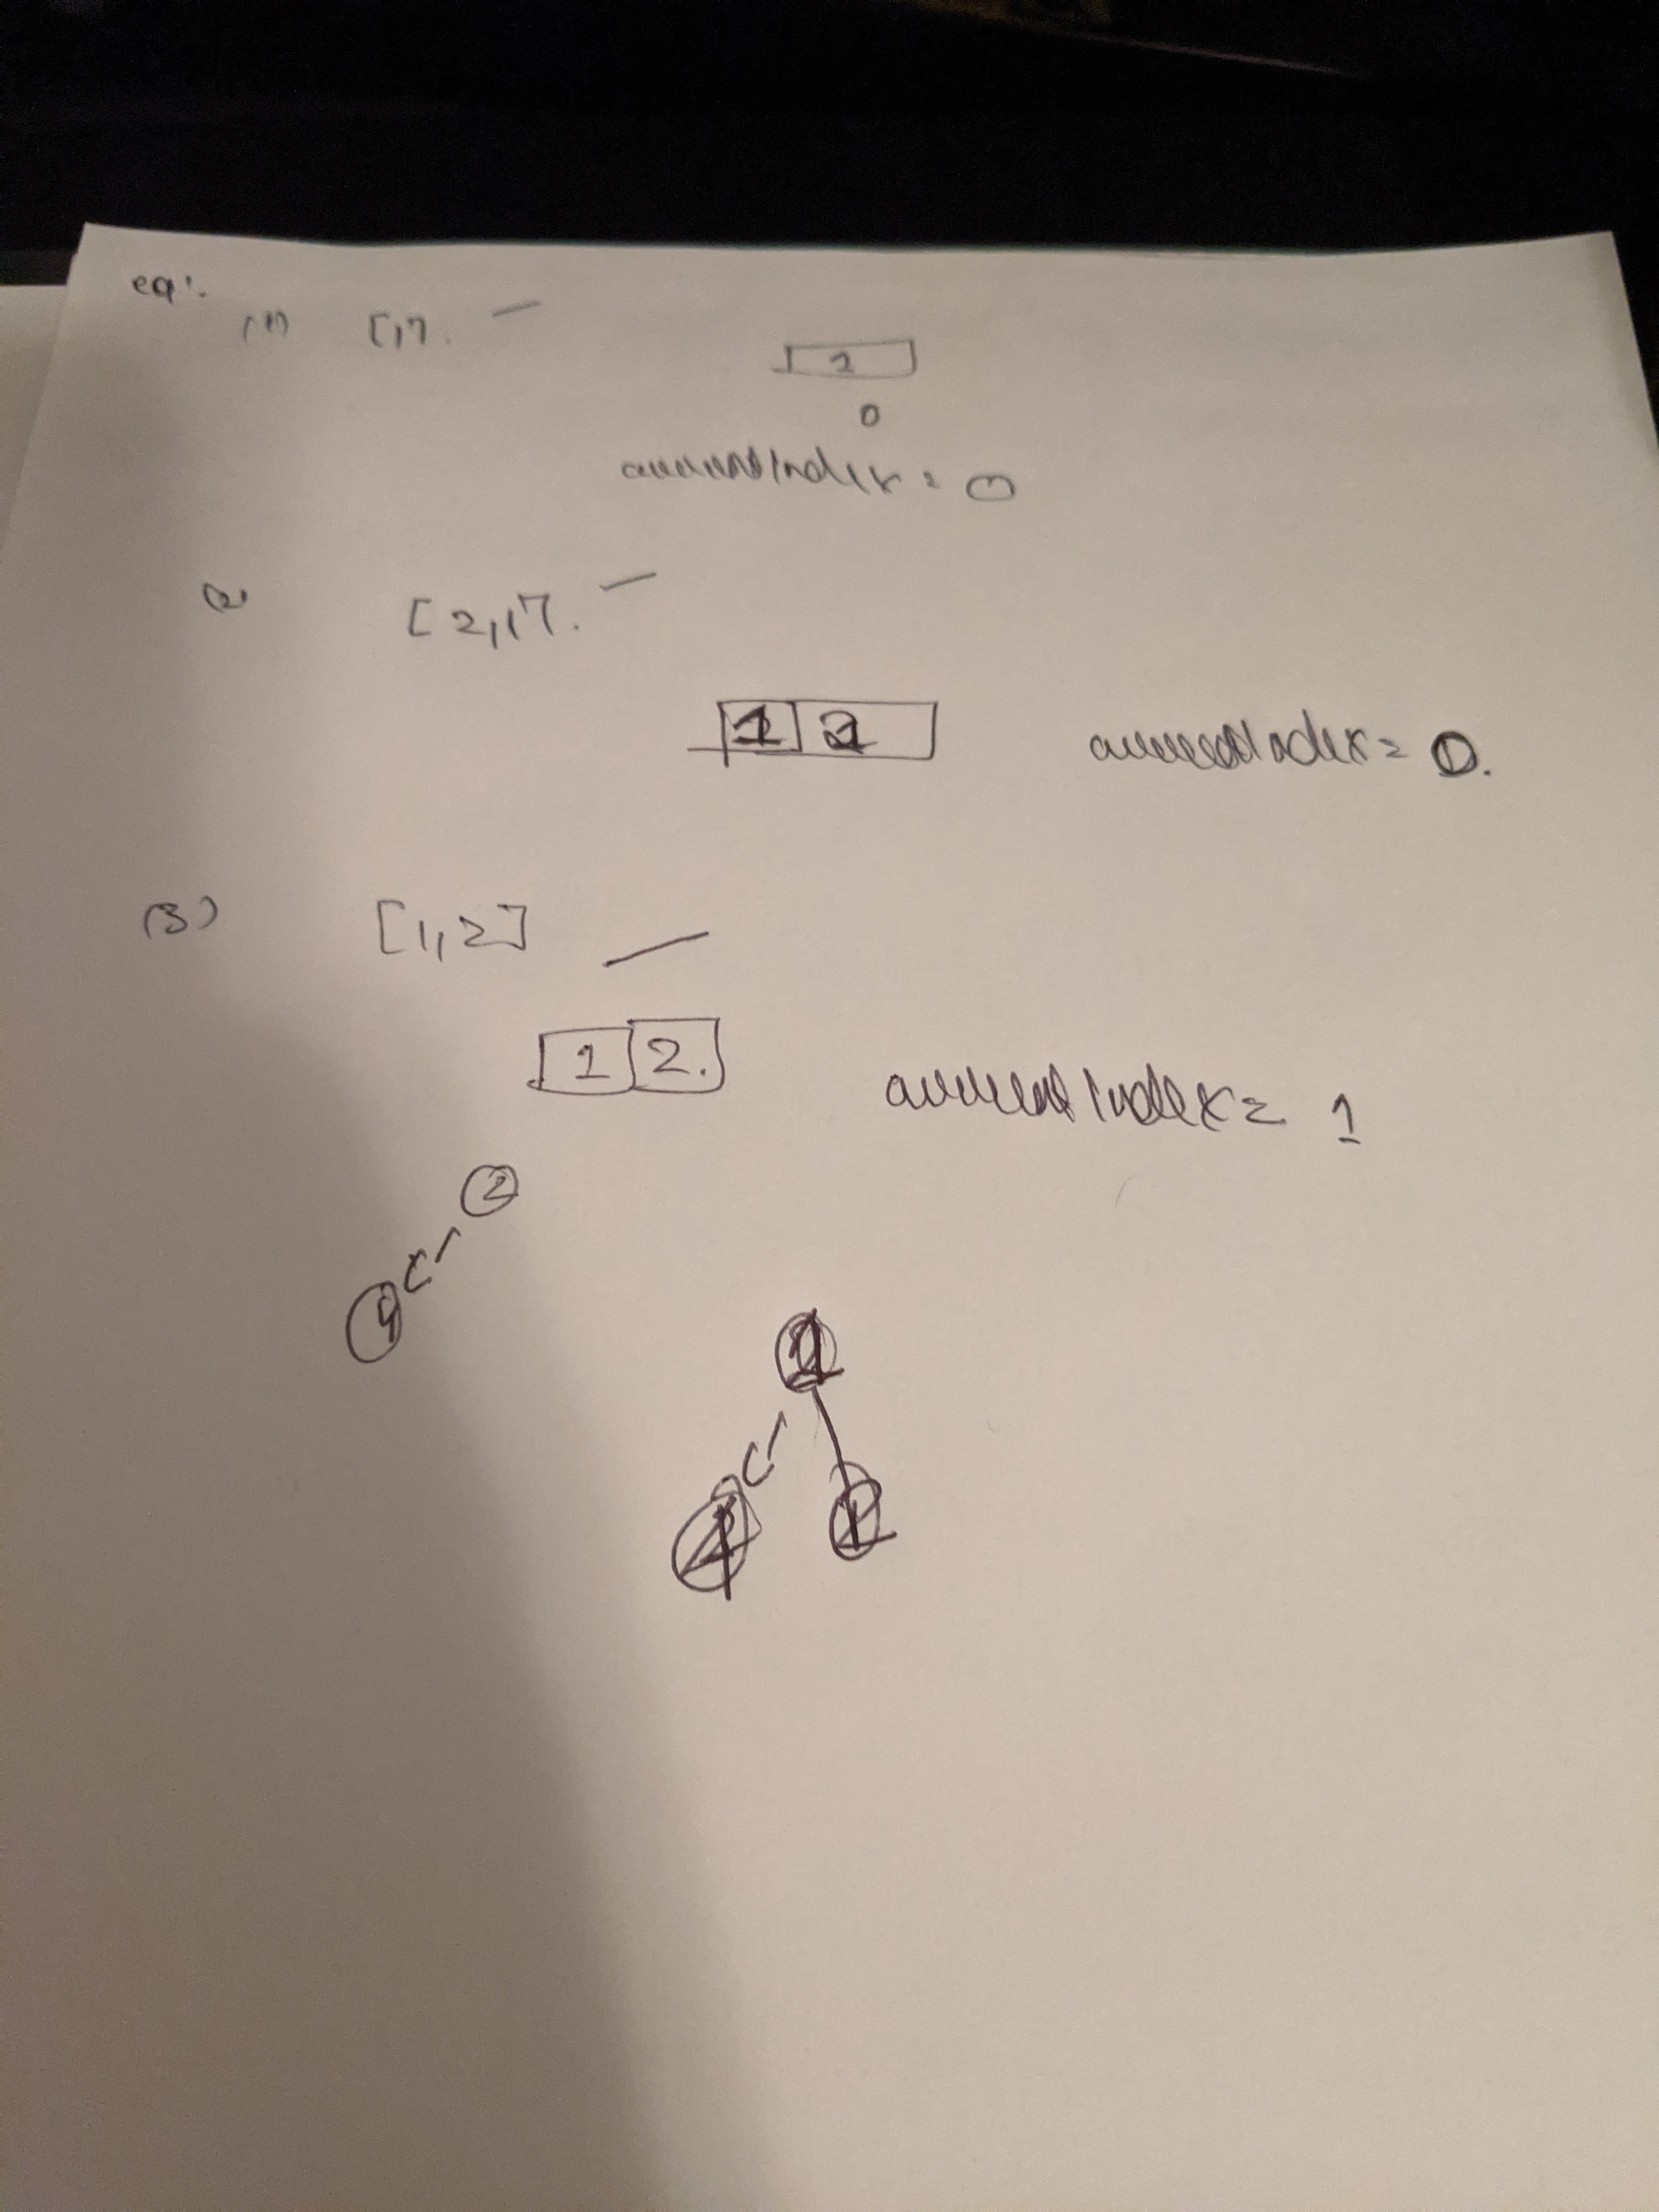 eg:-
(1) [1].
1
0
currentIndex = 0
(2) [2,1].
1 2
currentIndex = 0.
(3) [1,2]
1 2.
currentIndex = 1
2